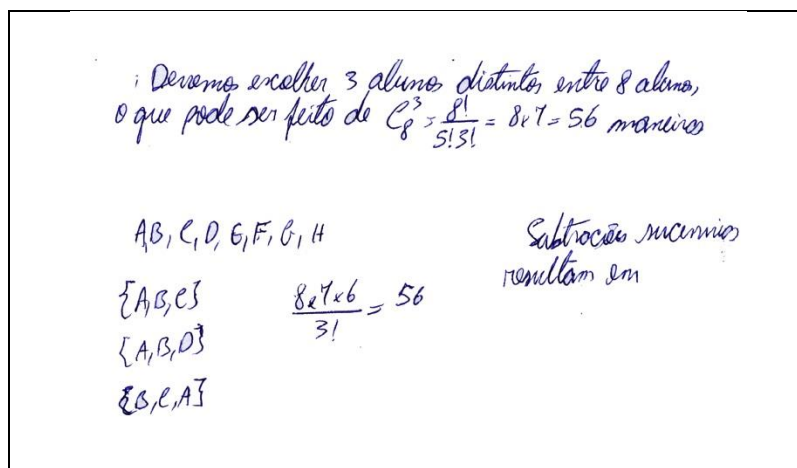 : Devemos escolher 3 alunos distintos entre 8 alunos,
o que pode ser feito de C₈³ = 8!/5!3! = 8x7 = 56 maneiras
A,B,C,D,E,F,G,H
Subtrações sucessivas
resultam em
{A,B,C}
8x7x6/3! = 56
{A,B,D}
{B,C,A}